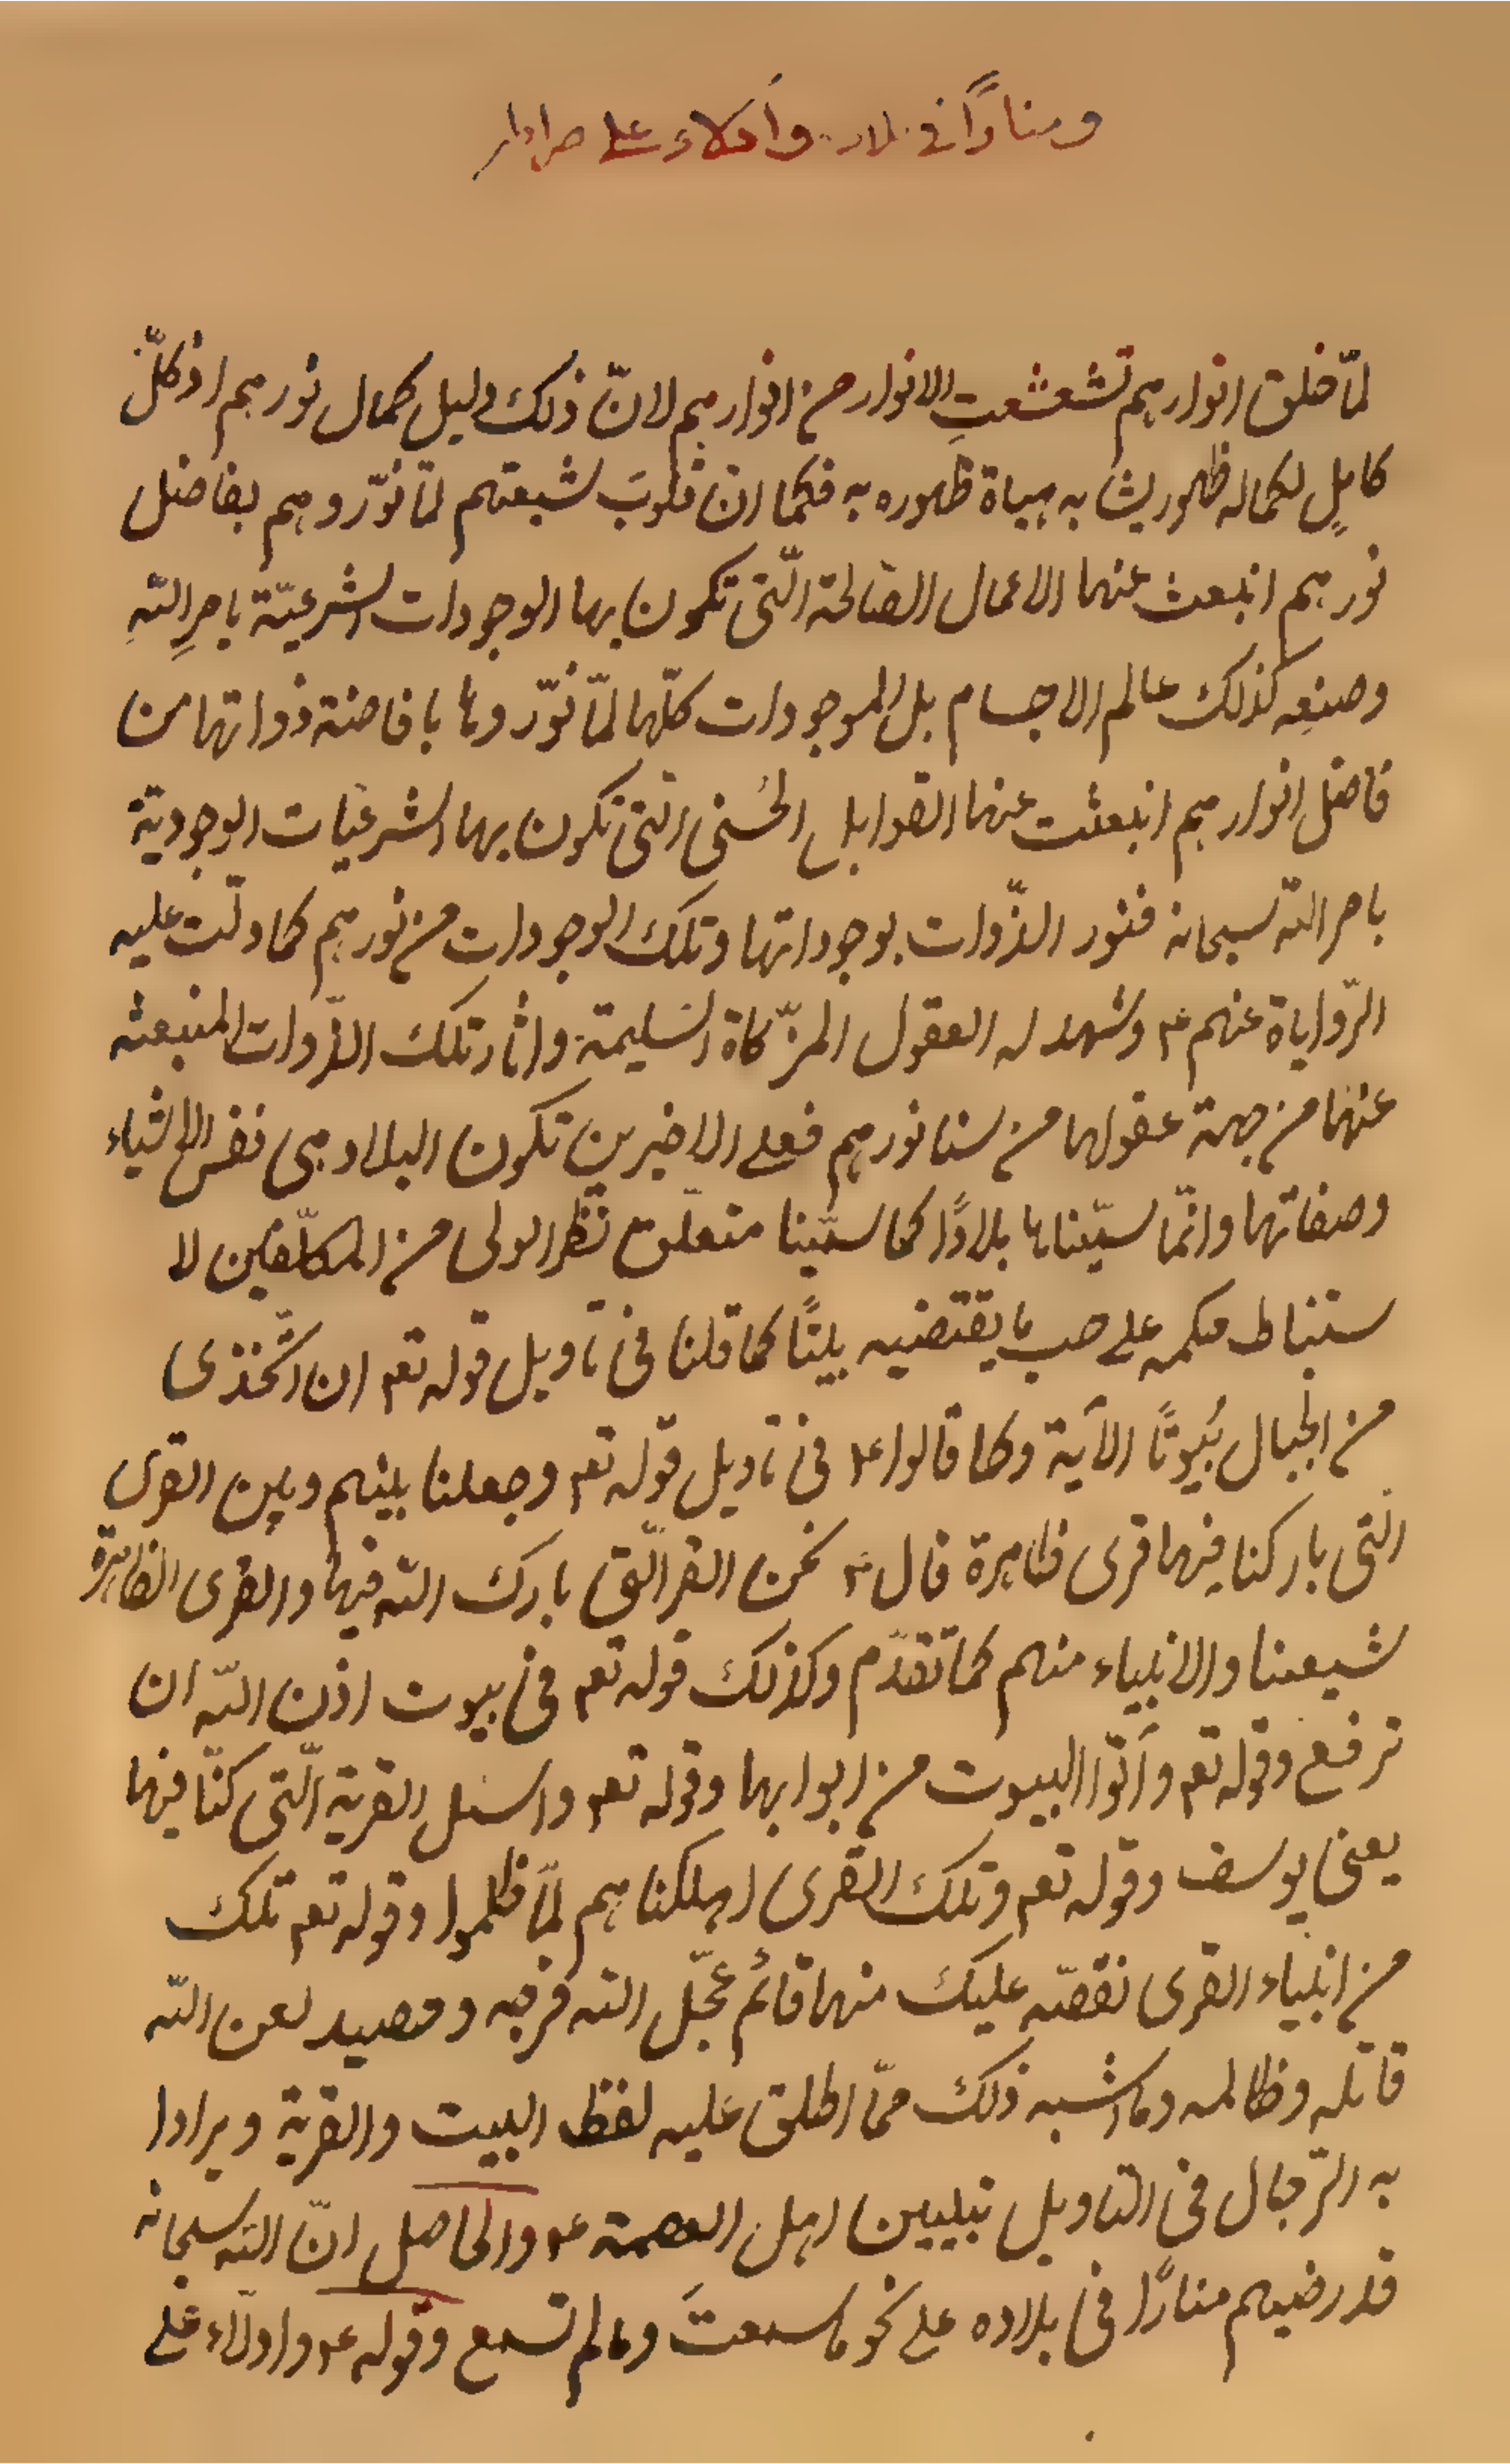 ومنارًا في بلاده وأدلاء على صراطه
لمّا خلق انوارهم تشعشعتِ الانوار من انوارهم لانّ ذلك دليل كمال نورهم اذ كلّ
كاملٍ لكماله ظهور يشابه هيأة ظهوره به فكما ان قلوبَ شيعتهم لمّا نوّروهم بفاضل
نورهم انبعث عنها الاعمال الصّالحة الّتي تكون بها الوجودات الشرعيّة بامرِ اللّهِ
وصنعِه كذلك عالم الاجسام بل الموجودات كلّها لمّا نوّروها بافاضة ذواتها من
فاضل انوارهم انبعثت عنها القوابل الحُسنى الّتي تكون بها الشرعيات الوجودية
بامر اللّه سبحانه فنور الذّوات بوجوداتها وتلك الوجودات من نورهم كما دلّت عليه
الرّواياة عنهم ع وشهد له العقول المزكّاة السّليمة واثار تلك الذّوات المنبعثه
عنها من جهة عقولها من سنا نورهم فعلى الاخيرين تكون البلاد هى نفس الاشياء
وصفاتها وانّما سمّيناها بلادًا كما سمّينا متعلّق نظر الولى من المكلّفين لا
ستنباط حكمه على حسب ما يقتضيه بيتًا كما قلنا فى تاويل قوله تعم ان اتّخذى
من الجبال بُيُوتًا الآية وكما قالوا ع فى تاويل قوله تعم وجعلنا بينهم وبين القرى
التى باركنا فيها قرى ظاهرة قال ع نحن القر الّتى بارك اللّه فيها والقرى الظاهرة
شيعتنا والانبياء منهم كما تقدّم وكذلك قوله تعم فى بيوت اذن اللّه ان
ترفع وقوله تعم وأتوا البيوت من ابوابها وقوله تعم واسئل القرية الّتى كنّا فيها
يعنى يوسف وقوله تعم وتلك القرى اهلكناهم لمّا ظلموا وقوله تعم تلك
من انبياء القرى نقصّه عليك منها قائم عجّل اللّه فرجه وحصيد لعن اللّه
قاتله وظالمه وما اشبه ذلك ممّا اطلق عليه لفظ البيت والقرية ويرادا
به الرّجال فى التاويل بتبيين اهل العصمة ع والحاصل انّ اللّه سبحانه
قد رضيهم منارًا فى بلاده على نحو ما سمعتَ وما لم تسمع وقوله ع وادلّاء على